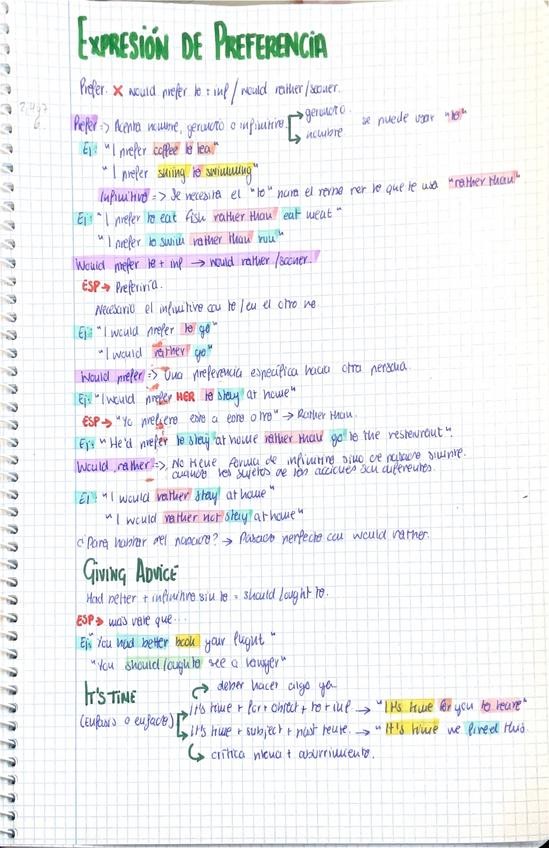 EXPRESIÓN DE PREFERENCIA
Prefer. × would prefer to + inf / would rather/sooner.
Prefer => Acepta nombre, gerundio o infinitivo. gerundio. nombre se puede usar "to"
Ej: "I prefer coffee to tea"
"I prefer skiing to swimming"
Infinitivo => Se necesita el "to" para el verbo por lo que se usa "rather than"
Ej: "I prefer to eat fish rather than eat meat"
"I prefer to swim rather than run"
Would prefer to + inf → would rather/sooner.
ESP → Preferiría.
Necesario el infinitivo con to / en el otro no
Ej: "I would prefer to go"
"I would rather go"
Would prefer => Una preferencia específica hacia otra persona.
Ej: "I would prefer HER to stay at home"
ESP → "Yo prefiero esto a esto otro" → Rather than.
Ej: "He'd prefer to stay at home rather than go to the restaurant".
Would rather => No tiene forma de infinitivo sino de pasado simple.
cuando los sujetos de las acciones son diferentes.
Ej: "I would rather stay at home"
"I would rather not stay at home"
¿Para hablar del pasado? → Pasado perfecto con would rather.
GIVING ADVICE
Had better + infinitivo sin to = should/ought to.
ESP → más vale que...
Ej: "You had better book your flight"
"You should/ought to see a lawyer"
IT'S TIME
deber hacer algo ya
(enfasis o enfado) it's time + for + object + to + inf → "It's time for you to leave"
it's time + subject + past tense. → "It's time we fixed this.
crítica, queja + aburrimiento.